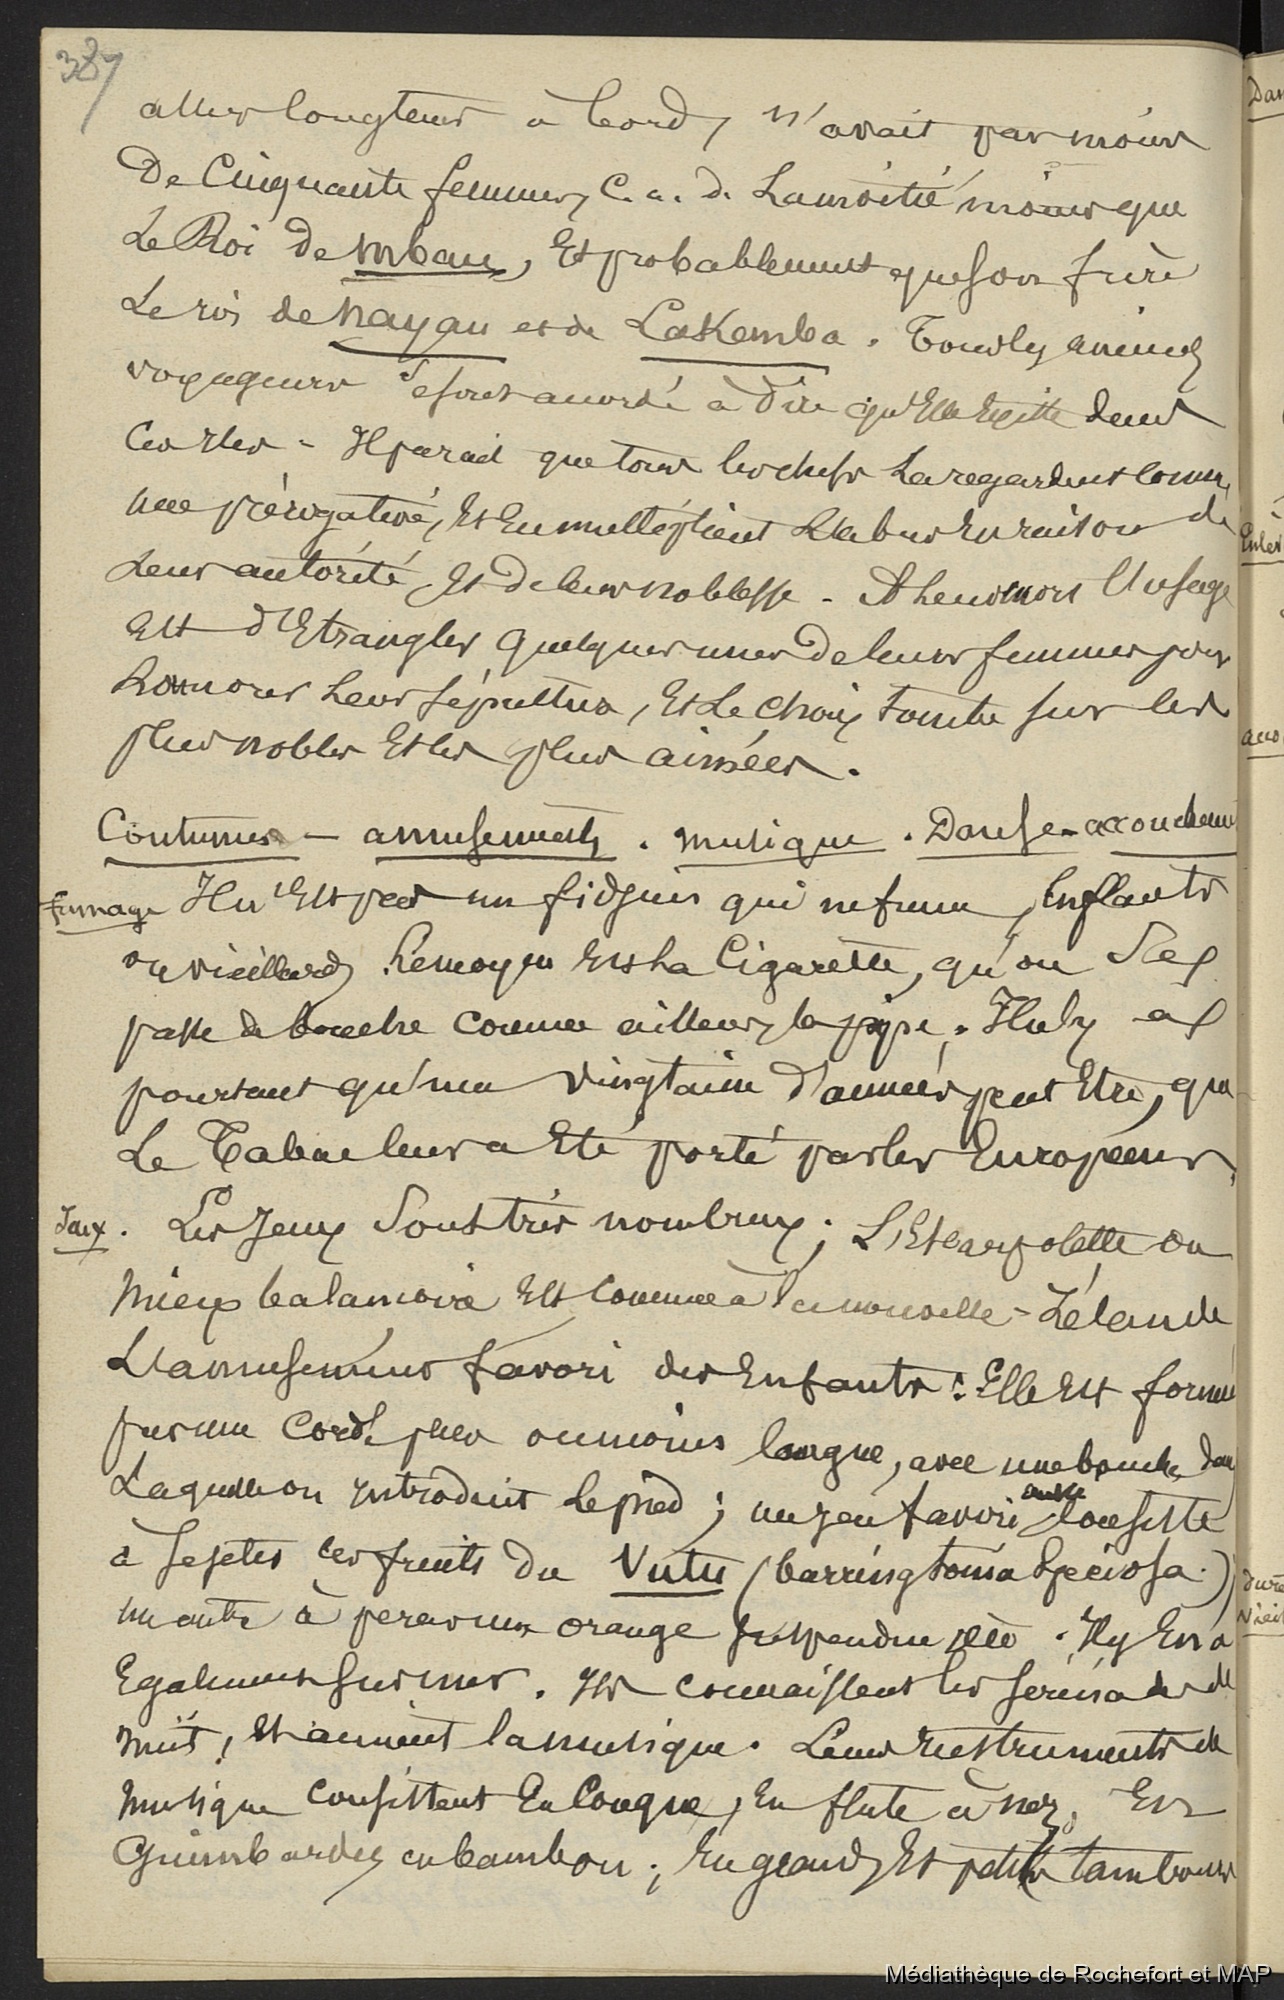 387
assez longtems à bord, n'avait pas moins
De Cinquante femmes, C. a. d. La moitié moins que
Le Roi de Mbau, Et probablement que son frère
Le roi de Nayau et de Lakemba. Tous les anciens
voyageurs se sont accordé à dire qu'Elle Existe dans
Ces Iles - Il parait que tous les chefs La regardent comme
une prérogative, Et En multiplient L'abus En raison de
Leur autorité Et de leur noblesse - A Leur mort l'Usage
Est d'Etrangler quelques unes de leurs femmes pour
honnorer Leur sépulture, Et Le choix tombe sur les
plus nobles Et les plus aimées.
Coutumes - amusements. musique. Danse - accouchem
fumage Il n'Est pas un fidgien qui ne fume, Enfants
ou vieillards. Le moyen Est La Cigarette, qu'on Se
passe de bouche comme ailleurs la pipe. Il n'y a
pourtant qu'une vingtaine d'années peut Etre, que
Le Tabac leur a Eté porté par les Européens.
Jeux. Les Jeux Sont très nombreux; L'Escarpolette ou
Mieux balançoire Est comme à la nouvelle-Zélande
L'amusement favori des Enfants: Elle Est formée
par une Corde plus ou moins longue, avec une boucle dans
Laquelle on introduit Le pied; un jeu favori aussi consiste
à Se jeter les fruits du Vutu (barringtonia Speciosa.)
un autre à percer une orange suspendue . Il y En a
Egalement sur mer. Ils connaissent les sérénades de
nuit, Et aiment la musique. Leurs instruments de
Musique consistent En Conque, En flute à nez, En
Guimbardes en bambou; En grands Et petits tambours
Médiathèque de Rochefort et MAP